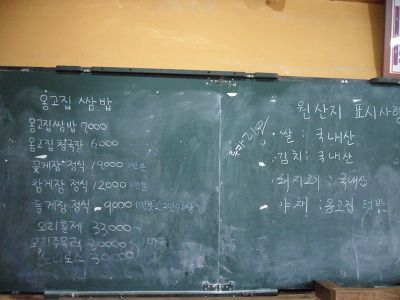 옹고집 쌈밥
옹고집쌈밥 7000
옹고집 청국장 6000
꽃게장 정식 19000 1인분
참게장 정식 12000 1인분
돌게장 정식 9000 1인분<2인이상>
오리훈제 33000
오리주물럭 30000
오리로스 30000
원산지 표시사항
쌀 : 국내산
김치 : 국내산
돼지고기 : 국내산
야채 : 옹고집 텃밭